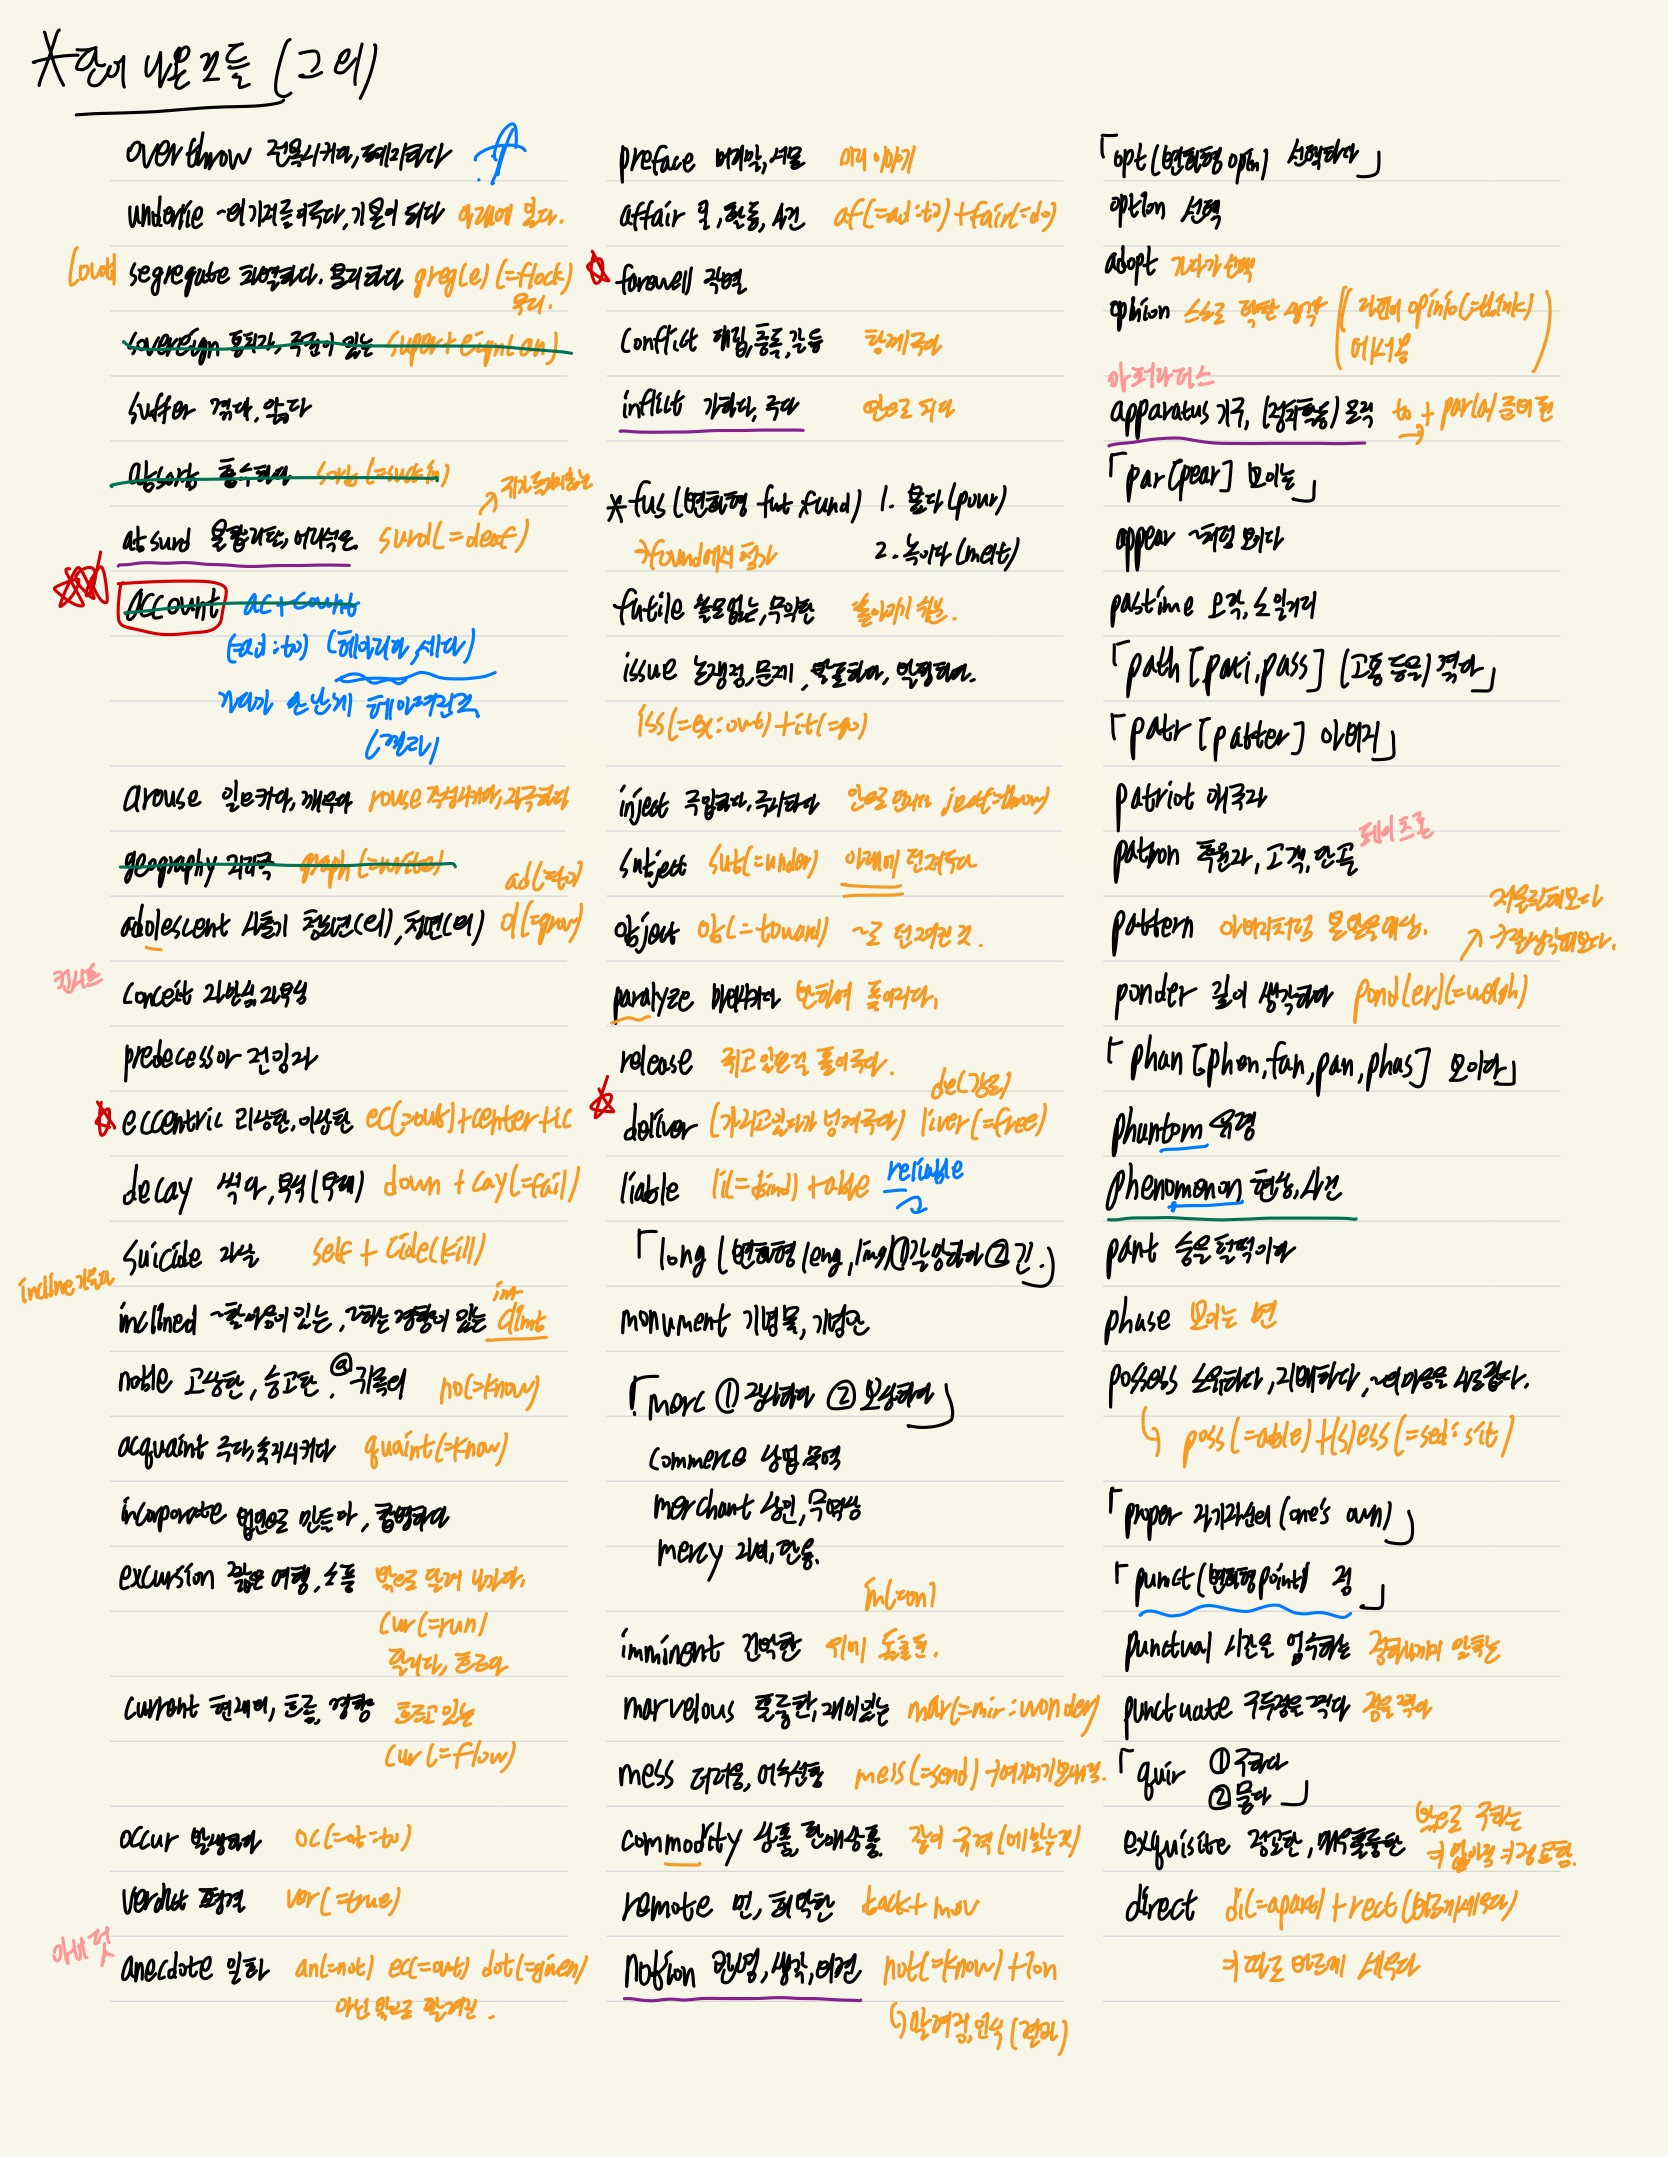 *단어 나온 것들 (그 외)
overthrow 전복시키다, 폐지하다
underlie ~의 기저를 이루다, 기본이 되다 아래에 있다.
segregate 차별하다. 분리하다 greg(e) (=flock)
무리.
sovereign 통치자, 주권이 있는
suffer 겪다, 앓다
absorb 흡수하다 sorb (=suck in)
absurd 불합리한, 어리석은 surd(=deaf)
account ac+count
(=ad:to) (헤아리다, 세다)
(결과)
arouse 일으키다, 깨우다 rouse 각성시키다, 자극하다
geography 지리학 graph (=write)
ad(=to)
adolescent 사춘기 청소년(의), 청년(의) ol(=grow)
conceit 자만심 자부심
predecessor 전임자
eccentric 괴상한, 이상한 ec(=out)+center+ic
decay 썩다, 부식(부패) down + cay(=fall)
suicide 자살 self + cide(kill)
incline 기울다
inclined ~할 마음이 있는, ~하는 경향이 있는
noble 고상한, 숭고한, @ 귀족의 no(=know)
acquaint 주다, 숙지시키다 quaint(=know)
incorporate 법인으로 만들다, 합병하다
excursion 짧은 여행, 소풍 밖으로 달려 나가다.
cur(=run)
달리다, 흐르다
current 현재의, 흐름, 경향 흐르고 있는
cur(=flow)
occur 발생하다 oc(=ob:to)
verdict 평결 ver(=true)
anecdote 일화 an(=not) ec(=out) dot(=given)
아닌 밖으로
preface 머리말, 서문 미리 이야기
affair 일, 활동, 사건 af(=ad:to)+fair(=do)
farewell 작별
conflict 대립, 충돌, 갈등 함께 치다
inflict 가하다, 주다 안으로 치다
*fus (변화형 fut, fund) 1. 붓다 (pour)
→found에서 헷갈 2. 녹이다 (melt)
futile 쓸모없는, 무익한 쏟아지기 쉬운.
issue 논쟁점, 문제, 발표하다, 발행하다.
iss(=ex:out)+it(=go)
inject 주입하다, 주사하다 안으로 던지다 ject(=throw)
subject sub(=under) 아래에 던져두다
object ob(=toward) ~로 던져진 것.
paralyze 마비시키다 반하여 풀어지다.
release 쥐고 있는걸 풀어주다.
de(강조)
deliver (가지고있다가 넘겨주다) liver(=free)
liable li(=bind) +able reliable
「long (변화형 leng, ling) ①갈망하다 ②긴.」
monument 기념물, 기념관
「merc ①감사하다 ②보상하다」
commerce 상업 무역
merchant 상인, 무역상
mercy 자비, 관용.
im(=on)
imminent 긴박한 위에 돌출된.
marvelous 훌륭한, 재미있는 mar(=mir:wonder)
mess 더러움, 어수선함 mess(=send)
commodity 상품, 판매상품.
remote 먼, 희박한 back+ mov
notion 관념, 생각, 의견 not(=know)+ion
「opt(변화형 opin) 선택하다」
option 선택
adopt 가다가 선택
opinion 스스로 택한 생각 (라틴어 opinio(=think)
에서 옴)
아퍼라더스
apparatus 기구, (정치활동) 조직 to + par(a) 준비된
「par [pear] 보이는」
appear ~처럼 보이다
pastime 오락, 소일거리
「path [pati, pass] (고통 등을) 겪다」
「patr [patter] 아버지」
patriot 애국자
페이츠론
patron 후원자, 고객, 단골
저울질해보다
pattern 아버지처럼 본받을 대상.
ponder 깊이 생각하다 pond(er)(=weigh)
「phan [phen, fan, pan, phas] 보이다」
phantom 유령
phenomenon 현상, 사건
pant 숨을 헐떡이다
phase 보이는 면
possess 소유하다, 지배하다, ~의 마음을 사로잡다.
poss(=able)+(s)ess(=sed:sit)
「proper 자기자신의 (one's own)」
「punct(변화형 point) 점」
punctual 시간을 엄수하는
punctuate 구두점을 찍다 점을 찍다
「quir ①구하다
②묻다」
exquisite 정교한, 매우훌륭한 밖으로 구하는
direct di(=apart)+rect
따로 바르게 세우다